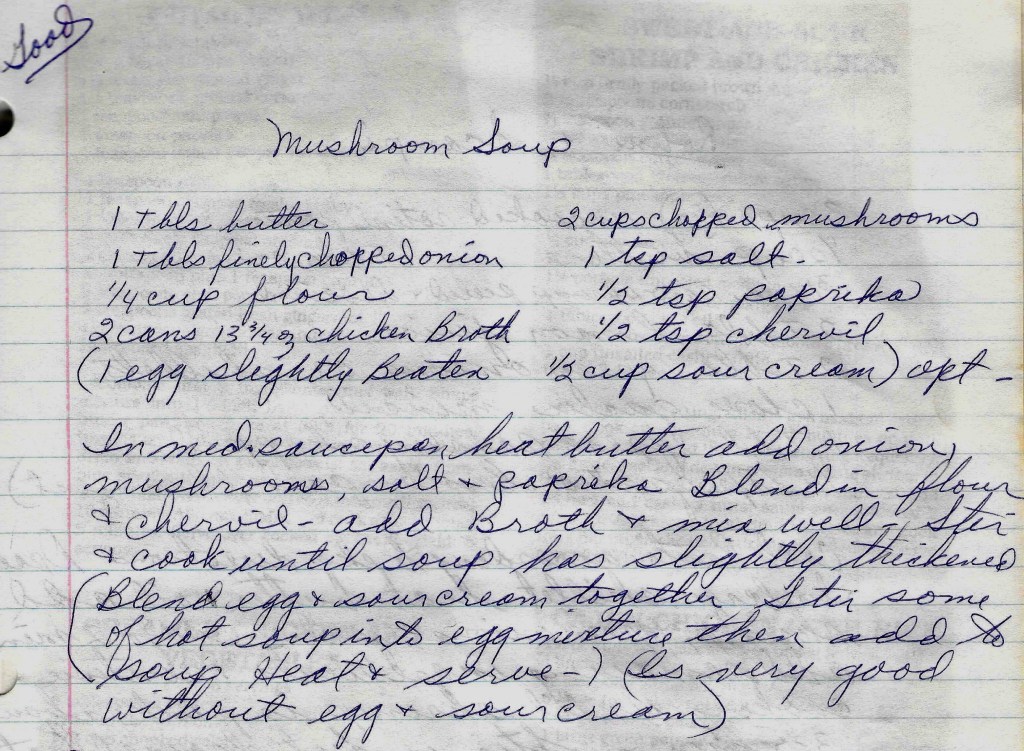 Good
Mushroom Soup
1 Tbls butter 2 cups chopped mushrooms
1 Tbls finely chopped onion 1 tsp salt.
1/4 cup flour 1/2 tsp paprika
2 cans 13 3/4 oz chicken Broth 1/2 tsp chervil
(1 egg slightly Beaten 1/3 cup sour cream) opt -
In med. saucepan, heat butter add onion,
mushrooms, salt + paprika Blend in flour
+ chervil - add Broth + mix well - Stir
+ cook until soup has slightly thickened
(Blend egg + sour cream together Stir some
of hot soup into egg mixture then add to
soup Heat + serve -) (Is very good
without egg + sour cream)